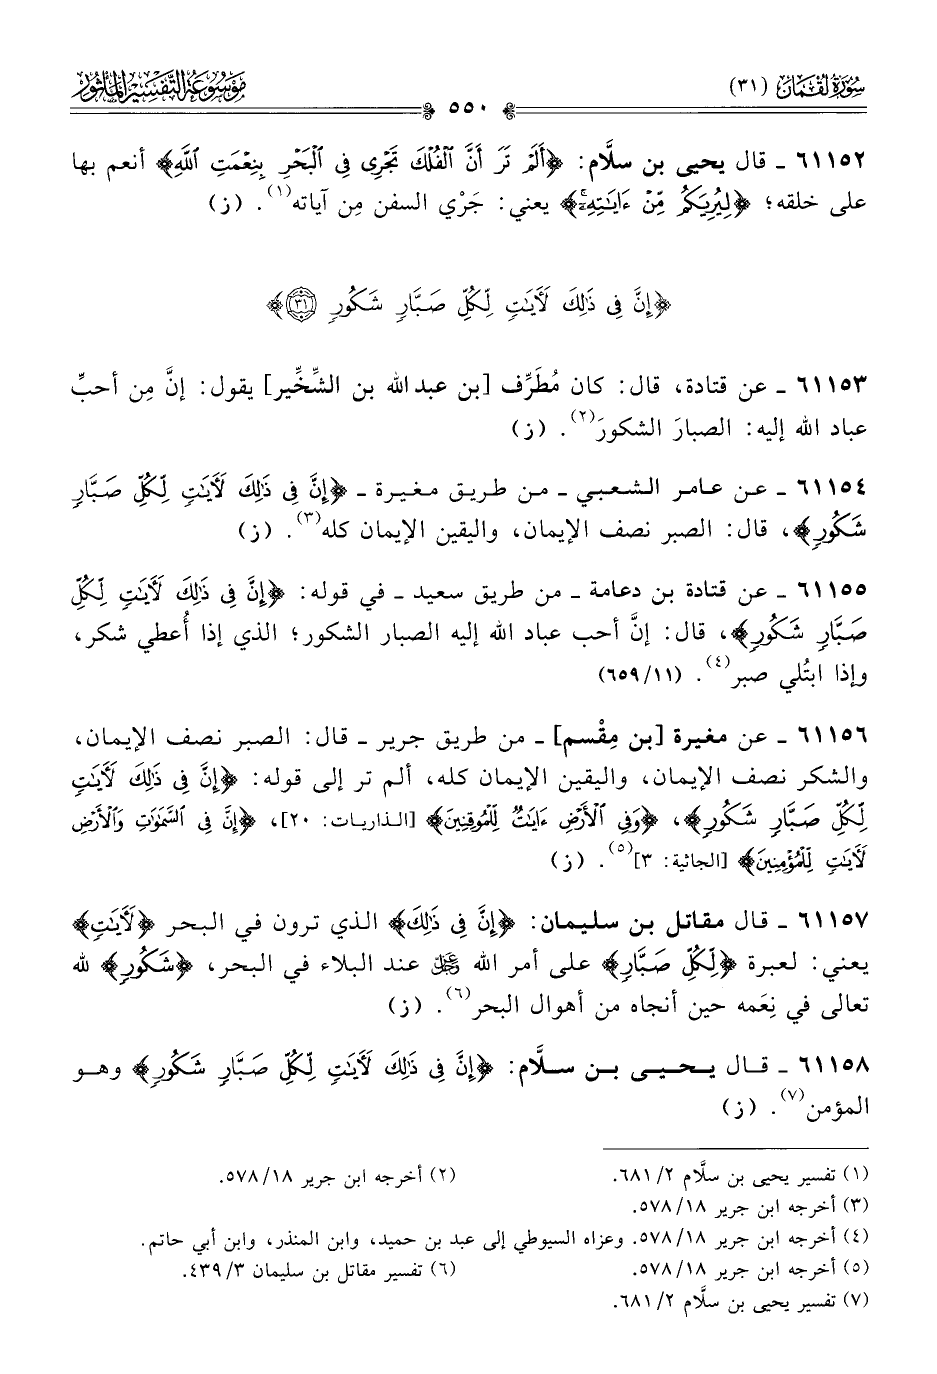 سُورَةُ لُقْمَان (٣١)
٥٥٠
مَوْسُوعَةُ التَّفْسِيرِ المَأثُور
٦١١٥٢ ـ قال يحيى بن سلَّام: ﴿أَلَمْ تَرَ أَنَّ الْفُلْكَ تَجْرِي فِي الْبَحْرِ بِنِعْمَتِ اللَّهِ﴾ أنعم بها
على خلقه؛ ﴿لِيُرِيَكُم مِّنْ ءَايَاتِهِ﴾ يعني: جَرْي السفن مِن آياته(١). (ز)
﴿إِنَّ فِي ذَٰلِكَ لَآيَاتٍ لِّكُلِّ صَبَّارٍ شَكُورٍ ٣١﴾
٦١١٥٣ ـ عن قتادة، قال: كان مُطَرِّف [بن عبد الله بن الشِّخِّير] يقول: إنَّ مِن أحبِّ
عباد الله إليه: الصبارَ الشكورَ(٢). (ز)
٦١١٥٤ ـ عن عامر الشعبي ـ من طريق مغيرة ـ ﴿إِنَّ فِي ذَٰلِكَ لَآيَاتٍ لِّكُلِّ صَبَّارٍ
شَكُورٍ﴾، قال: الصبر نصف الإيمان، واليقين الإيمان كله(٣). (ز)
٦١١٥٥ ـ عن قتادة بن دعامة ـ من طريق سعيد ـ في قوله: ﴿إِنَّ فِي ذَٰلِكَ لَآيَاتٍ لِّكُلِّ
صَبَّارٍ شَكُورٍ﴾، قال: إنَّ أحب عباد الله إليه الصبار الشكور؛ الذي إذا أُعطي شكر،
وإذا ابتُلي صبر(٤). (٦٥٩/١١)
٦١١٥٦ ـ عن مغيرة [بن مِقْسم] ـ من طريق جرير ـ قال: الصبر نصف الإيمان،
والشكر نصف الإيمان، واليقين الإيمان كله، ألم تر إلى قوله: ﴿إِنَّ فِي ذَٰلِكَ لَآيَاتٍ
لِّكُلِّ صَبَّارٍ شَكُورٍ﴾، ﴿وَفِي الْأَرْضِ ءَايَاتٌ لِّلْمُوقِنِينَ﴾ [الذاريات: ٢٠]، ﴿إِنَّ فِي السَّمَاوَاتِ وَالْأَرْضِ
لَآيَاتٍ لِّلْمُؤْمِنِينَ﴾ [الجاثية: ٣](٥). (ز)
٦١١٥٧ ـ قال مقاتل بن سليمان: ﴿إِنَّ فِي ذَٰلِكَ﴾ الذي ترون في البحر ﴿لَآيَاتٍ﴾
يعني: لعبرة ﴿لِّكُلِّ صَبَّارٍ﴾ على أمر الله ﷿ عند البلاء في البحر، ﴿شَكُورٍ﴾ لله
تعالى في نِعَمه حين أنجاه من أهوال البحر(٦). (ز)
٦١١٥٨ ـ قال يحيى بن سلَّام: ﴿إِنَّ فِي ذَٰلِكَ لَآيَاتٍ لِّكُلِّ صَبَّارٍ شَكُورٍ﴾ وهو
المؤمن(٧). (ز)
(١) تفسير يحيى بن سلَّام ٦٨١/٢. (٢) أخرجه ابن جرير ٥٧٨/١٨.
(٣) أخرجه ابن جرير ٥٧٨/١٨.
(٤) أخرجه ابن جرير ٥٧٨/١٨. وعزاه السيوطي إلى عبد بن حميد، وابن المنذر، وابن أبي حاتم.
(٥) أخرجه ابن جرير ٥٧٨/١٨. (٦) تفسير مقاتل بن سليمان ٤٣٩/٣.
(٧) تفسير يحيى بن سلَّام ٦٨١/٢.